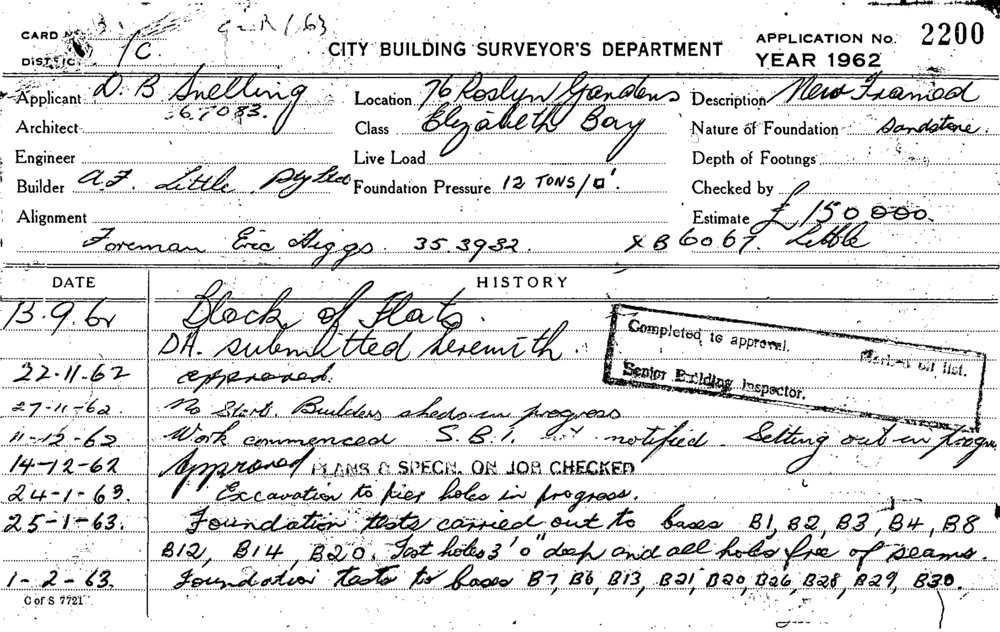 CARD No. 3. G2R/63
DISTRICT 1C.
CITY BUILDING SURVEYOR'S DEPARTMENT
APPLICATION No. 2200
YEAR 1962
Applicant D. B Snelling Location 76 Roslyn Gardens Description New Framed
Architect 67083. Class Elizabeth Bay Nature of Foundation Sandstone.
Engineer Live Load Depth of Footings
Builder A.F. Little Pty Ltd Foundation Pressure 12 TONS/□'. Checked by
Alignment Estimate £150000.
Foreman Eric Higgs. 35 3932 XB6067. Little
DATE HISTORY
13.9.62 Block of Flats.
DA. submitted herewith.
22.11.62 approved.
27-11-62. No Start. Builders sheds in progress
11-12-62 Work commenced S.B.I. not notified. Setting out in progre
14-12-62 Approved PLANS & SPECN. ON JOB CHECKED
24-1-63. Excavation to pier holes in progress.
25-1-63. Foundation tests carried out to bases B1, B2, B3, B4, B8
B12, B14, B20. Test holes 3'0" deep and all holes free of seams.
1-2-63. Foundation tests to bases B7, B6, B13, B21, B20, B26, B28, B29, B30.
C of S 7721
Completed to approval. Marked off list.
Senior Building Inspector.